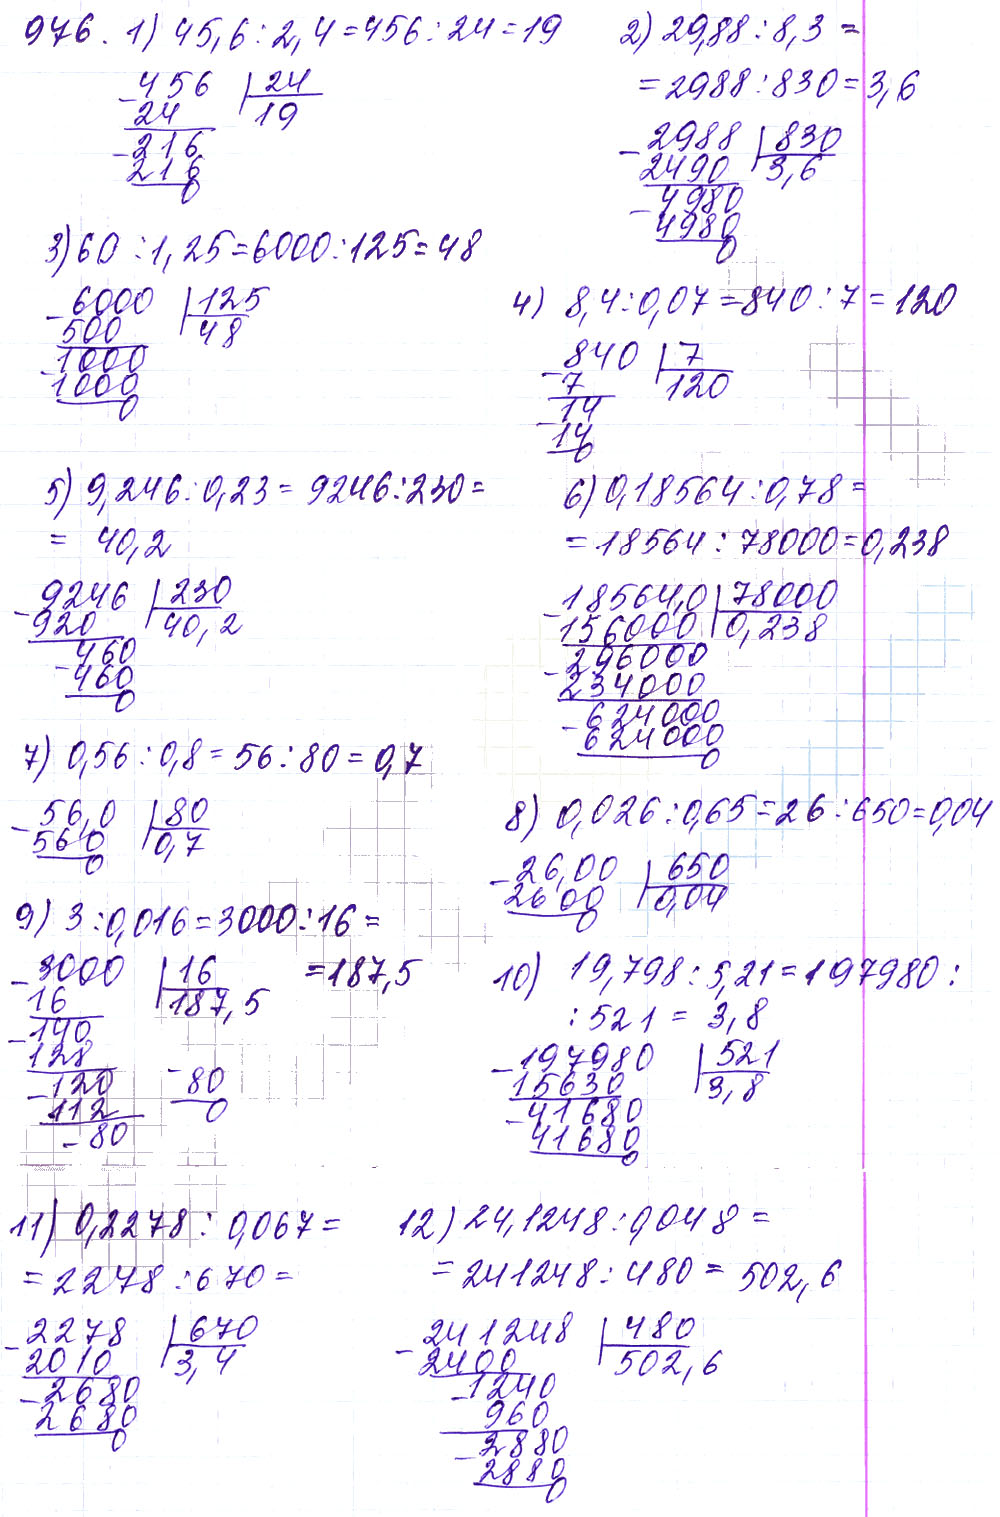 976. 1) 45,6 : 2,4 = 456 : 24 = 19
- 456 | 24
24 19
- 216
216
0
2) 29,88 : 8,3 =
= 2988 : 830 = 3,6
- 2988 | 830
2490 3,6
- 4980
4980
0
3) 60 : 1,25 = 6000 : 125 = 48
- 6000 | 125
500 48
- 1000
1000
0
4) 8,4 : 0,07 = 840 : 7 = 120
- 840 | 7
7 120
- 14
14
0
5) 9,246 : 0,23 = 9246 : 230 =
= 40,2
- 9246 | 230
920 40,2
- 460
460
0
6) 0,18564 : 0,78 =
= 18564 : 78000 = 0,238
- 18564,0 | 78000
156000 0,238
- 296000
234000
- 624000
624000
0
7) 0,56 : 0,8 = 56 : 80 = 0,7
- 56,0 | 80
560 0,7
0
8) 0,026 : 0,65 = 26 : 650 = 0,04
- 26,00 | 650
2600 0,04
0
9) 3 : 0,016 = 3000 : 16 =
= 187,5
- 3000 | 16
16 187,5
- 140
128
- 120
112
- 80
- 80
0
10) 19,798 : 5,21 = 197980 :
: 521 = 3,8
- 197980 | 521
15630 3,8
- 41680
41680
0
11) 0,2278 : 0,067 =
= 2278 : 670 =
- 2278 | 670
2010 3,4
- 2680
2680
0
12) 24,1248 : 0,048 =
= 241248 : 480 = 502,6
- 241248 | 480
2400 502,6
- 1240
960
- 2880
2880
0